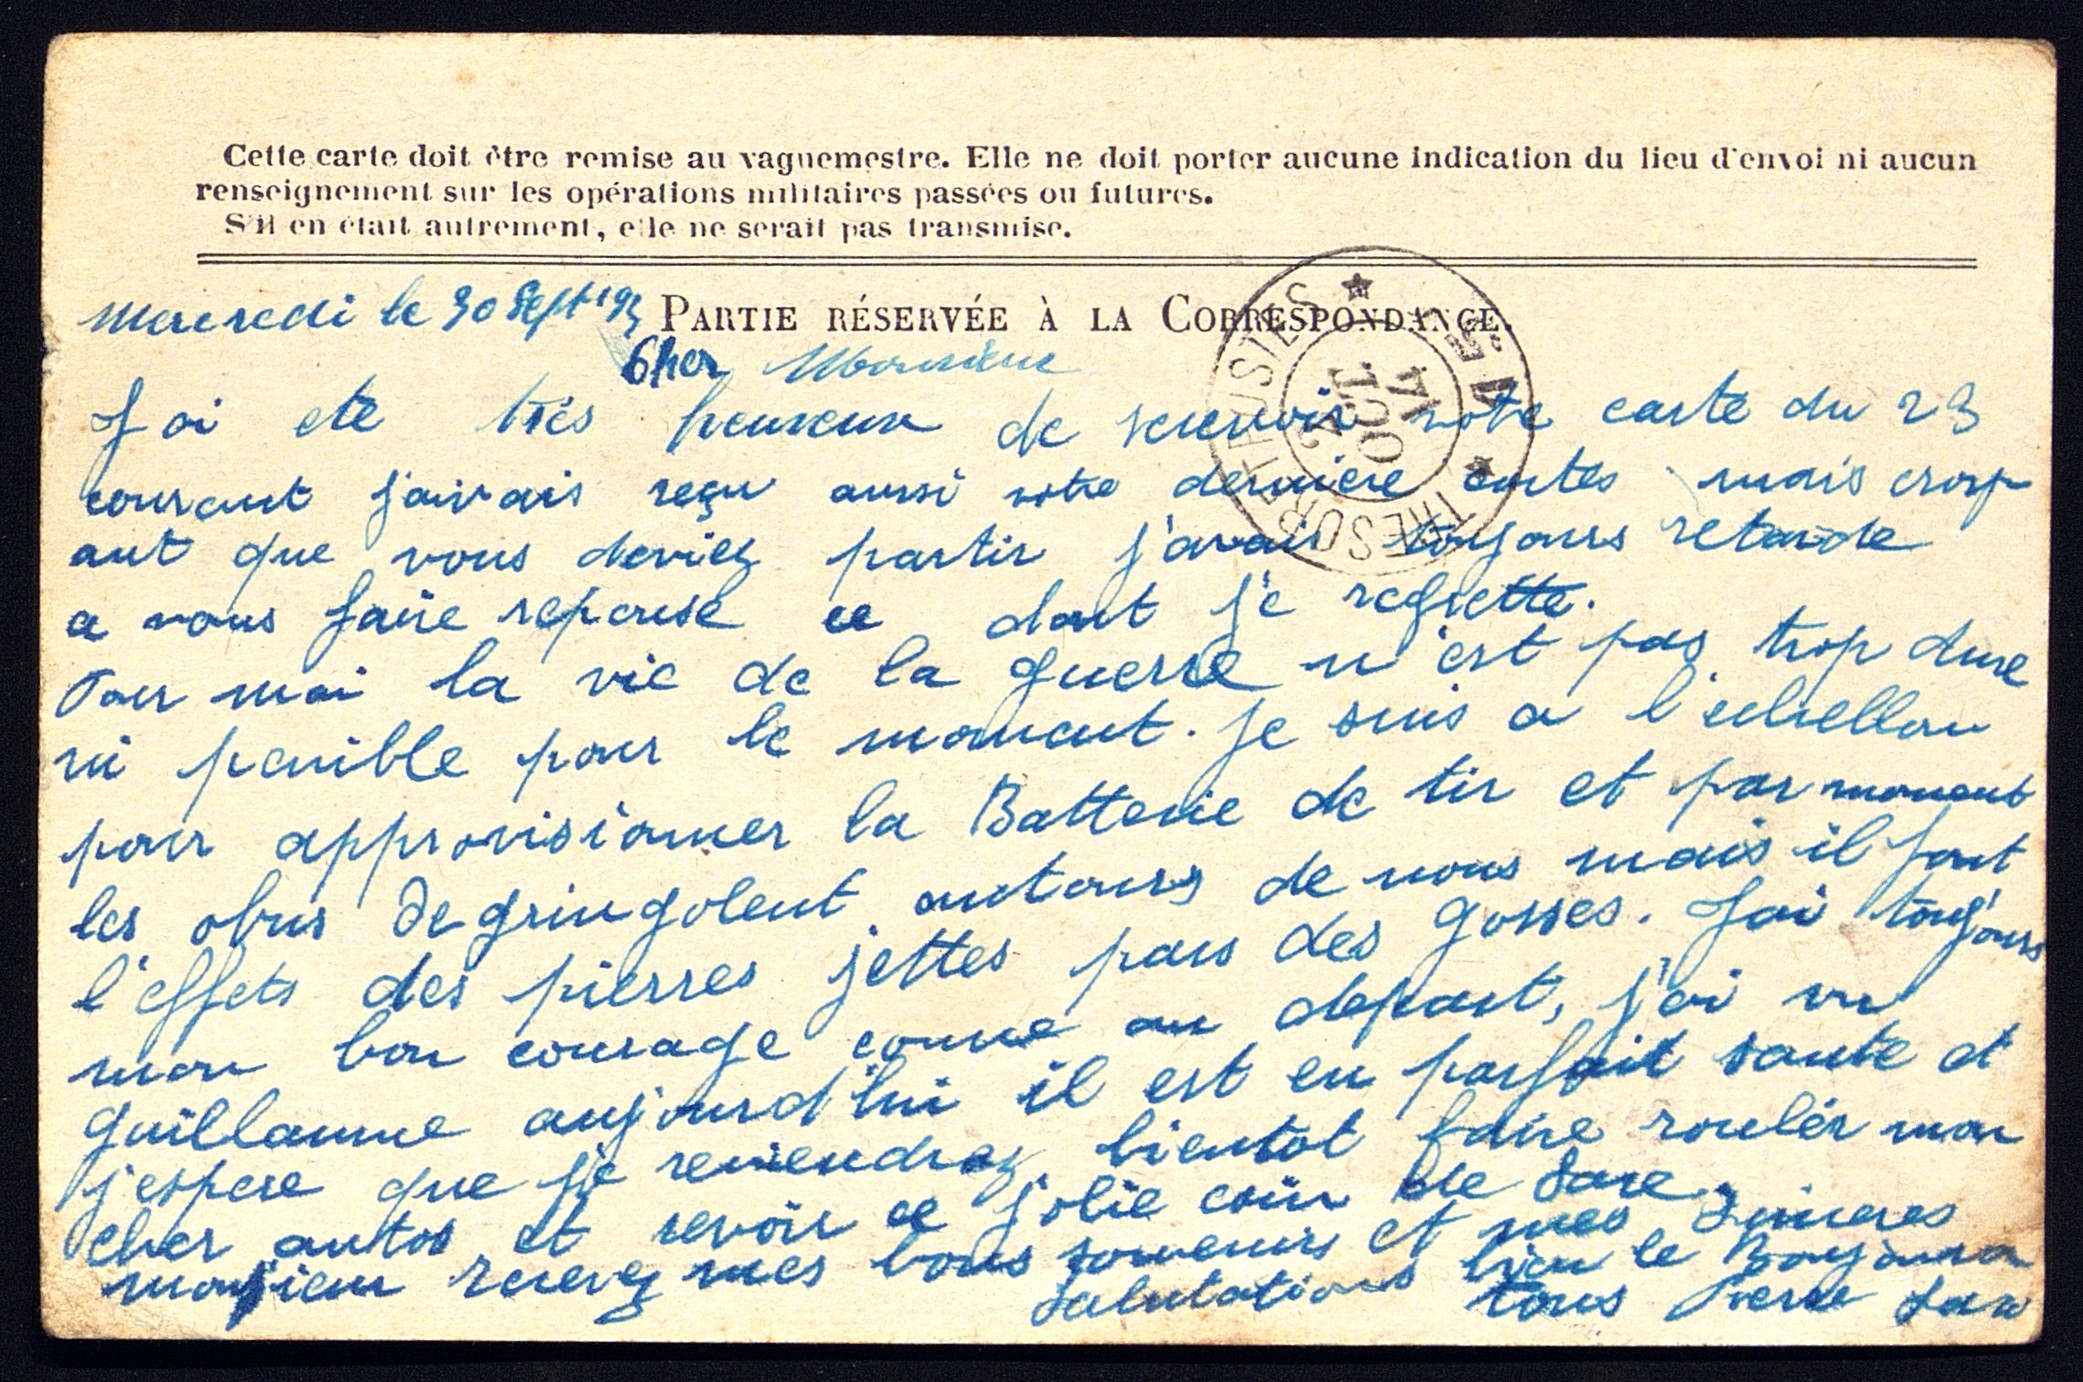 Cette carte doit être remise au vaguemestre. Elle ne doit porter aucune indication du lieu d'envoi ni aucun
renseignement sur les opérations militaires passées ou futures.
S'il en était autrement, elle ne serait pas transmise.
Mercredi le 30 Sept
PARTIE RÉSERVÉE À LA CORRESPONDANCE.
TRESOR ET POSTES
2 OCT 14
Cher Monsieur
J ai ete très heureux de recevoir votre carte du 23
courant j'aivais reçu aussi votre derniere cartes mais croy
ant que vous deviez partir j'avais toujours retarde
a vous faire reponse ce dont je regrette.
Pour moi la vie de la guerre n'est pas trop dure
ni penible pour le moment. Je suis a l'echellon
pour approvisionner la Batterie de tir et par moment
les obus degringolent autours de nous mais il font
l'effets des pierres jettes pars des gosses. J'ai toujours
mon bon courage comme au depart, j'ai vu
guillaume aujourd'hui il est en parfait sante et
j'espere que je reviendrez bientot faire rouler mon
cher autos et revoir ce jolie coin de Sare.
monsieur recevez mes bons souvenirs et mes sinceres
salutations bien le Bonjour a
tous Pierre